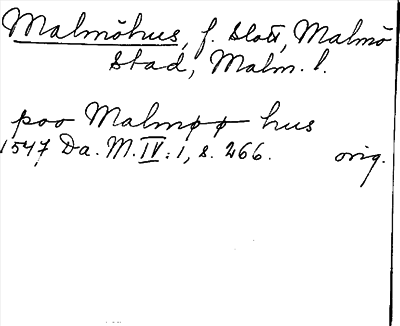 Malmöhus, f. slott, Malmö
Stad, Malm. l.
poo Malmøø hus
1547 Da. M. IV: 1, s. 266. orig.